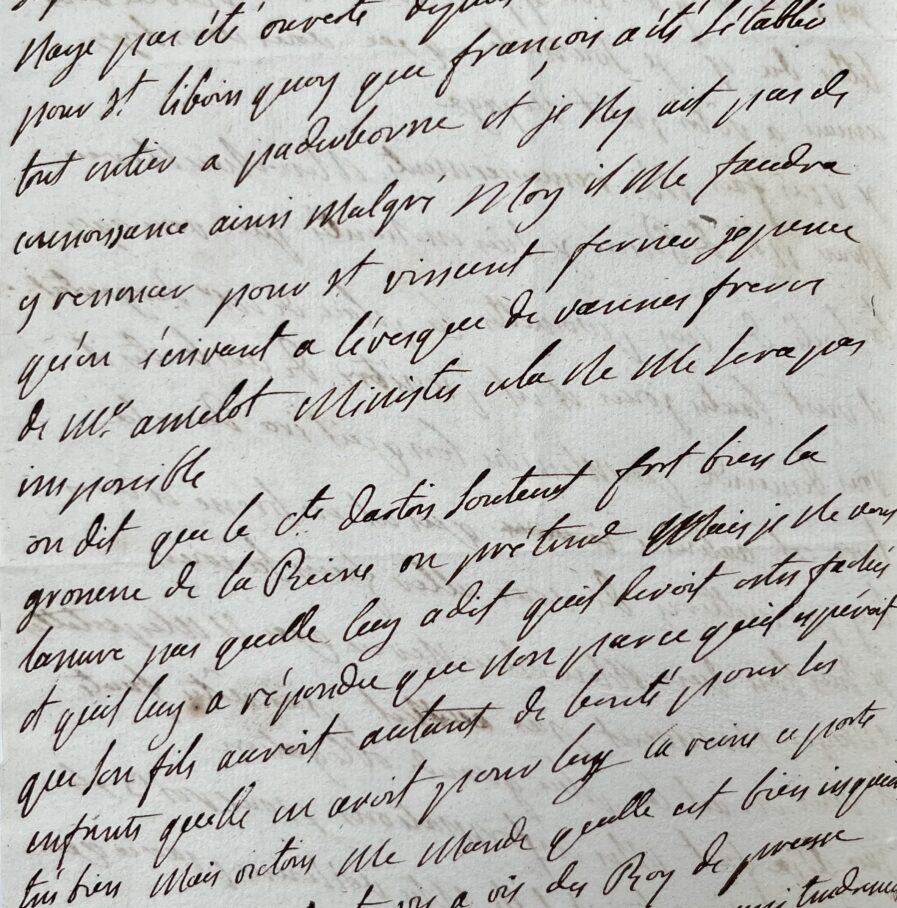 naye pas été ouverte depuis
pour st liboire quoy que françois a été s'établir
tout entier a paderborne et je n'y ait pas de
connoissance ainsi malgré Moy il Me faudra
y renoncer pour st vincent ferrier je pense
qu'en écrivant a l'évesque de vannes frere
de Mr. amelot Ministre cela Ne Me sera pas
impossible
on dit que le cte dartois soutient fort bien la
grossesse de la Reine on prétend Mais je Ne vous
lassure pas quelle luy a dit quil devoit estre faché
et quil luy a répondu que non parce quil espéroit
que son fils auroit autant de bonté pour les
enfants quelle en avoit pour luy la reine ce porte
très bien Mais Me Mande quelle est bien
vis a vis du Roy de prusse